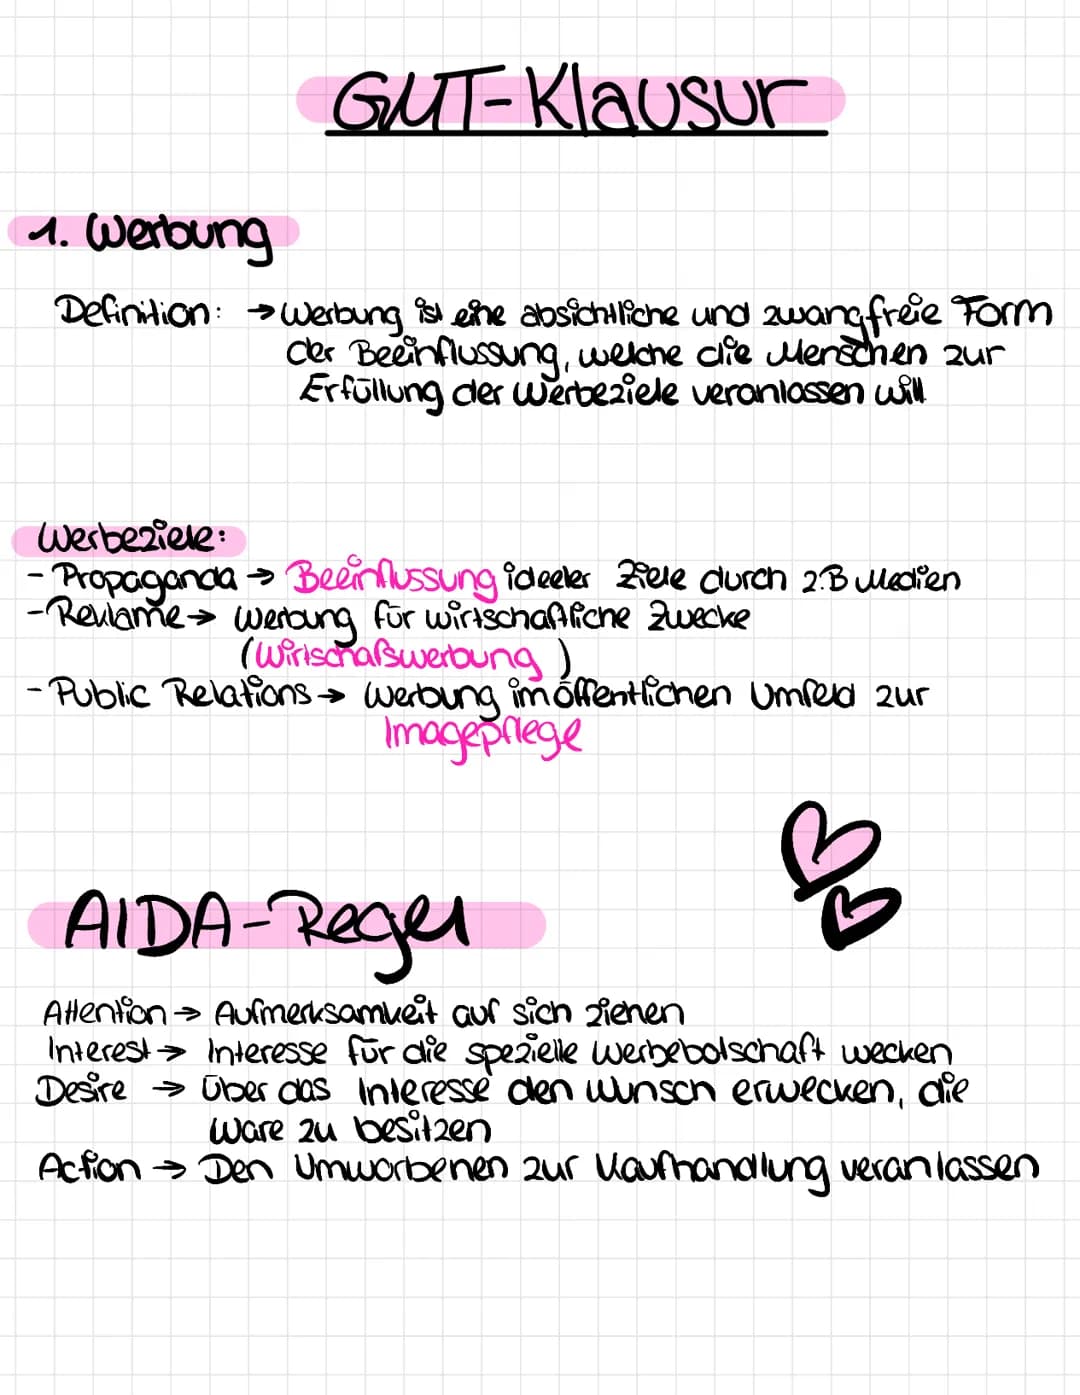 GUT-Klausur
1. Werbung
Definition: → Werbung ist eine absichtliche und zwangfreie Form
der Beeinflussung, welche die Menschen zur
Erfüllung der Werbeziele veranlassen will
Werbeziele:
- Propaganda → Beeinflussung ideeler Ziele durch z.B Medien
- Reklame → Werbung für wirtschaftliche Zwecke
(Wirtschafswerbung)
- Public Relations → Werbung im öffentlichen Umfeld zur
Imagepflege
AIDA-Regel
Attention → Aufmerksamkeit auf sich ziehen
Interest → Interesse für die spezielle Werbebotschaft wecken
Desire → Über das Interesse den Wunsch erwecken, die
Ware zu besitzen
Action → Den Umworbenen zur Kaufhandlung veranlassen